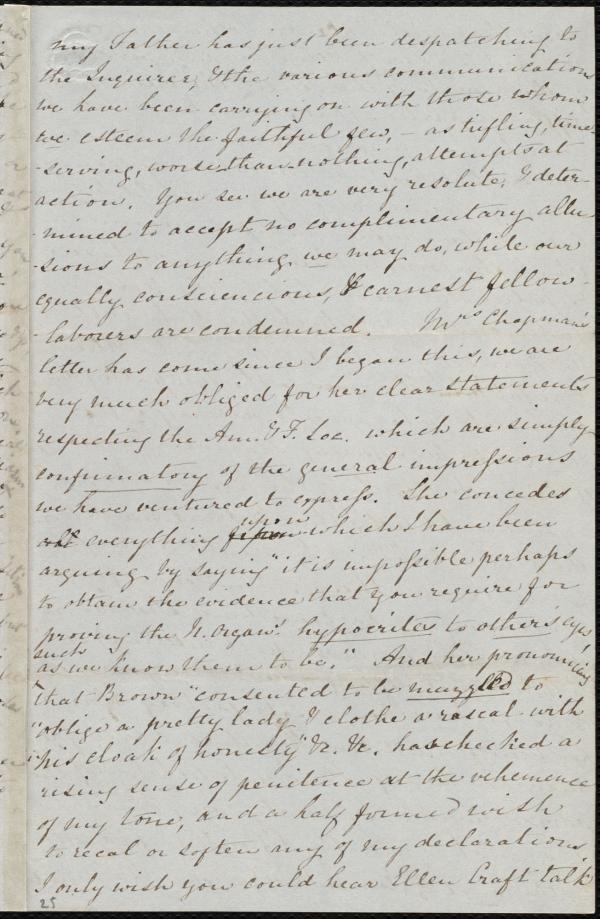 my Father has just been despatching to
the Inquirer, & the various communications
we have been carrying on with those whom
we esteem the faithful few, – as trifling, time
-serving, worse-than-nothing, attempts at
action. You see we are very resolute, & deter-
-mined to accept no complimentary allu
-sions to anything we may do, while our
equally consciencious, & earnest fellow-
-laborers are condemned. Mrs Chapman's
letter has come since I began this, we are
very much obliged for her clear statements
respecting the Am. & F. Soc. which are simply
confirmatory of the general impressions
we have ventured to express. She concedes
everything upon which I have been
arguing by saying "it is impossible perhaps
to obtain the evidence that you require for
proving the N. Organts hypocrites to other's eyes
such
as we know them to be." And her pronouncing
that Brown "consented to be muzzled to
"oblige a pretty lady & clothe a rascal with
"his cloak of honesty" &c. &c. has checked a
rising sense of penitence at the vehemence
of my tone, and a half formed wish
to recal or soften any of my declarations
I only wish you could hear Ellen Craft talk
25